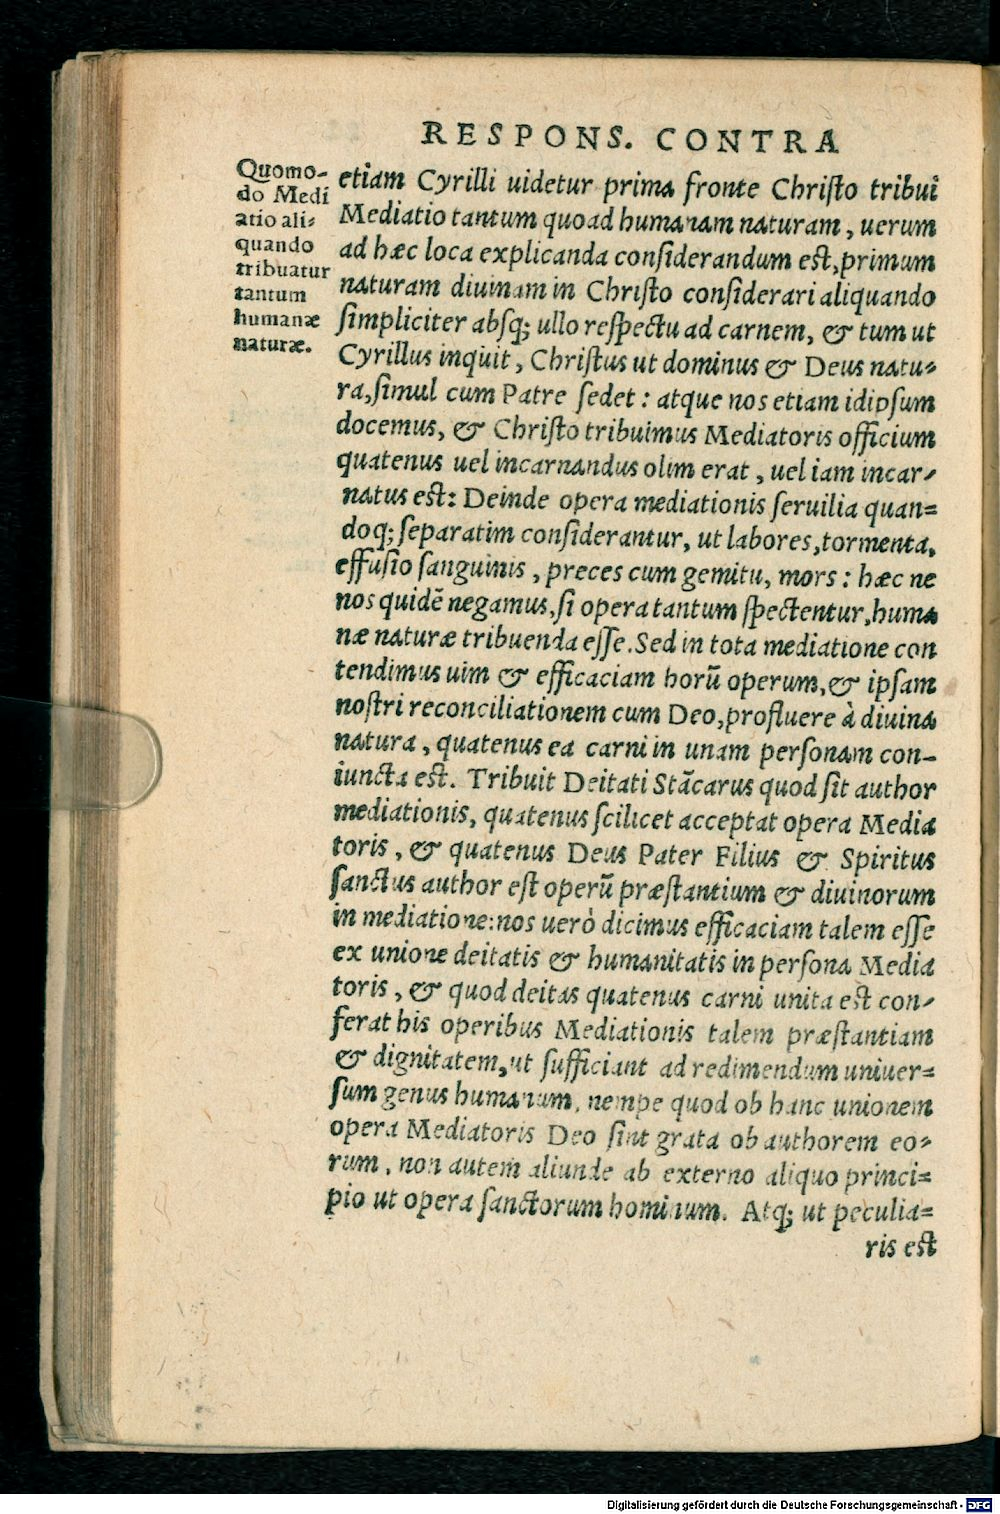 RESPONS. CONTRA
Quomo-
do Medi
atio ali-
quando
tribuatur
tantum
humanæ
naturæ.
etiam Cyrilli uidetur prima fronte Christo tribui
Mediatio tantum quoad humanam naturam, uerum
ad hæc loca explicanda considerandum est, primum
naturam diuinam in Christo considerari aliquando
simpliciter absq; ullo respectu ad carnem, & tum ut
Cyrillus inquit, Christus ut dominus & Deus natu-
ra, simul cum Patre sedet: atque nos etiam idipsum
docemus, & Christo tribuimus Mediatoris officium
quatenus uel incarnandus olim erat, uel iam incar-
natus est: Deinde opera mediationis seruilia quan-
doq; separatim considerantur, ut labores, tormenta,
effusio sanguinis, preces cum gemitu, mors: hæc ne
nos quidē negamus, si opera tantum spectentur, huma
næ naturæ tribuenda esse. Sed in tota mediatione con
tendimus uim & efficaciam horū operum, & ipsam
nostri reconciliationem cum Deo, profluere à diuina
natura, quatenus ea carni in unam personam con-
iuncta est. Tribuit Deitati Stācarus quod sit author
mediationis, quatenus scilicet acceptat opera Media
toris, & quatenus Deus Pater Filius & Spiritus
sanctus author est operū præstantium & diuinorum
in mediatione: nos uerò dicimus efficaciam talem esse
ex unione deitatis & humanitatis in persona Media
toris, & quod deitas quatenus carni unita est con-
ferat his operibus Mediationis talem præstantiam
& dignitatem, ut sufficiant ad redimendum uniuer-
sum genus humanum, nempe quod ob hanc unionem
opera Mediatoris Deo sint grata ob authorem eo-
rum, non autem aliunde ab externo aliquo princi-
pio ut opera sanctorum hominum. Atq; ut peculia-
ris est
Digitalisierung gefördert durch die Deutsche Forschungsgemeinschaft - DFG